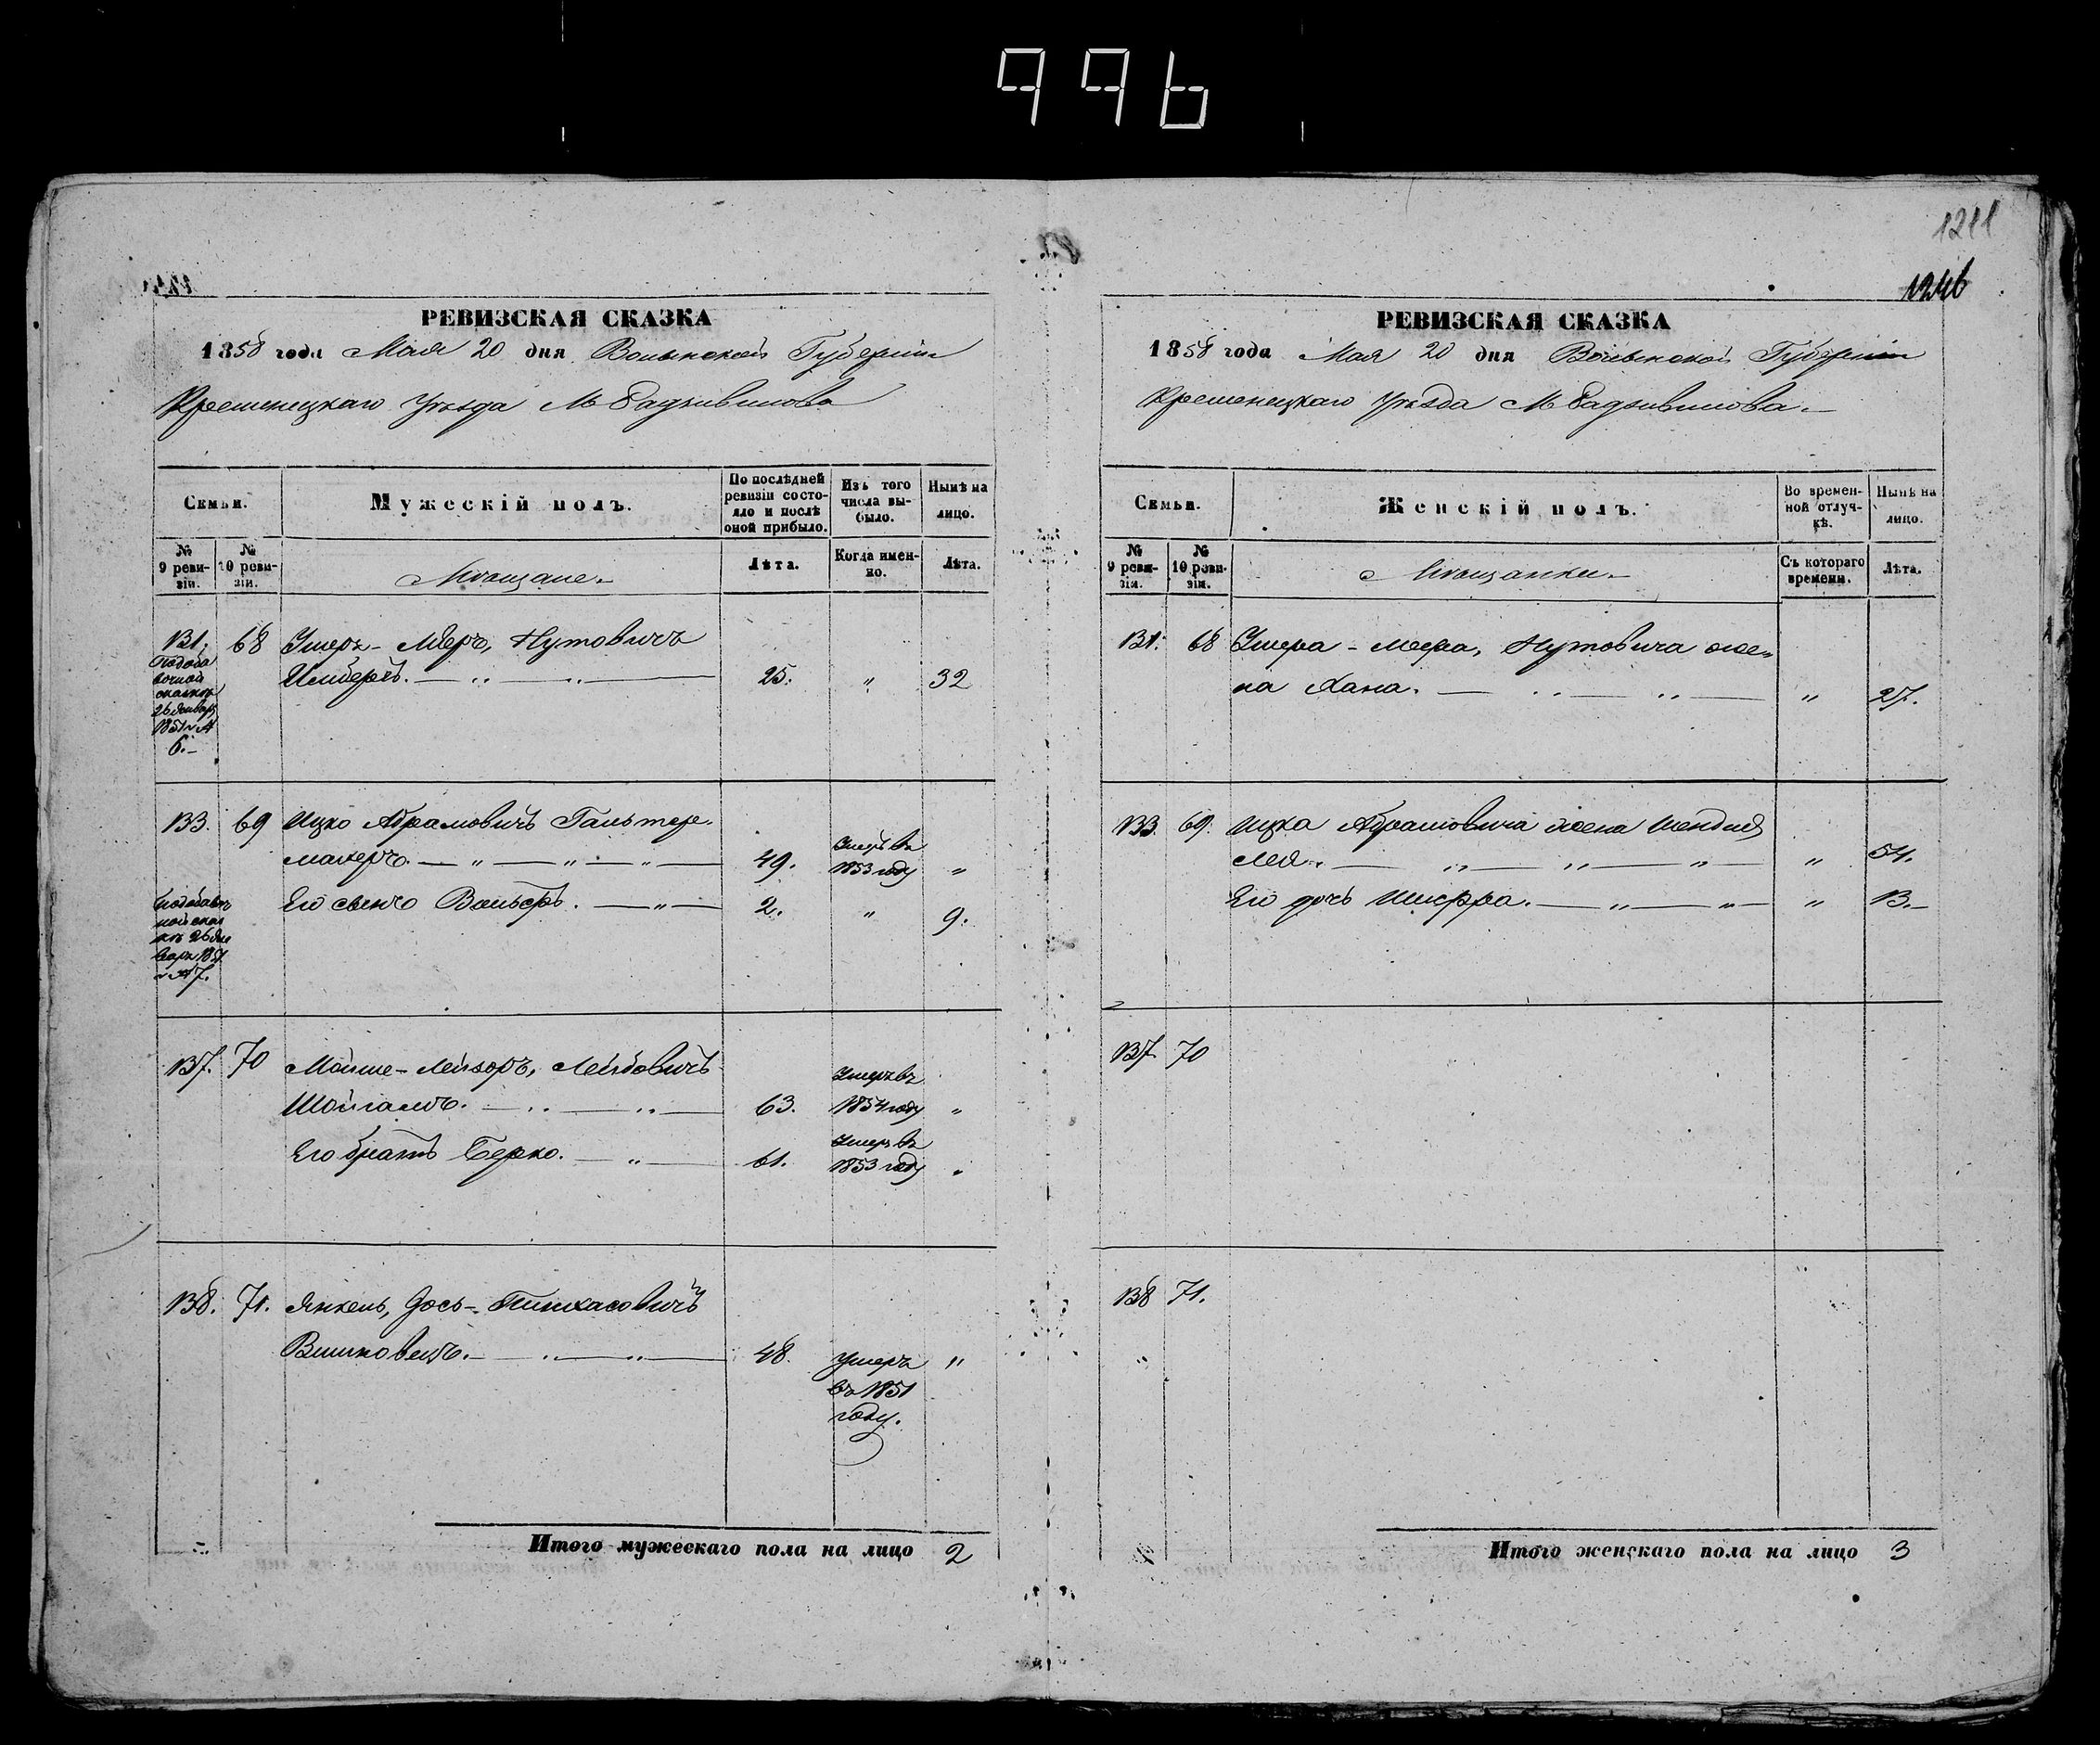 996
1211
1246
РЕВИЗСКАЯ СКАЗКА
1858 года Мая 20 дня Волынской Губернiи
Кременецкаго Уѣзда М Радзивилова
Семьи.
Мужескiй полъ.
По послѣдней ревизiи состо-
яло и послѣ оной прибыло.
Изъ того числа вы-
было.
Нынѣ на лицо.
№ 9 реви-
зiи.
№ 10 реви-
зiи.
Мѣщане.
Лѣта.
Когда имен-
но.
Лѣта.
131. 68 Умеръ-Меръ, Нутовичъ
25. " 32
26 Января
1851 г. №
6.
133. 69 Ицко Абрамовичъ Гальтер-
махеръ. 49. Умеръ въ 1853 году "
Его сынъ Вольфъ. 2. " 9.
1851
г. № 7.
137. 70 Мойше-Лейзоръ, Лейбовичъ
63. Умеръ въ 1854 году "
Его братъ Берко. 61. Умеръ въ 1853 году "
138. 71. Янкель, Іось-Пинхасовичъ
Вишковецъ. 48. Умеръ "
въ 1851
году.
Итого мужескаго пола на лицо 2
РЕВИЗСКАЯ СКАЗКА
1858 года Мая 20 дня Волынской Губернiи
Кременецкаго Уѣзда М Радзивилова.
Семьи.
Женскiй полъ.
Во времен-
ной отлуч-
кѣ.
Нынѣ на лицо.
№ 9 реви-
зiи.
№ 10 реви-
зiи.
Мѣщанки.
Съ котораго времени.
Лѣта.
131. 68 Нутовича же-
на Хана. " 27.
133. 69. Ицка Абрамовича жена
Лея. " 54.
Его дочь Шифра. " 13.
137. 70
138 71.
Итого женскаго пола на лицо 3